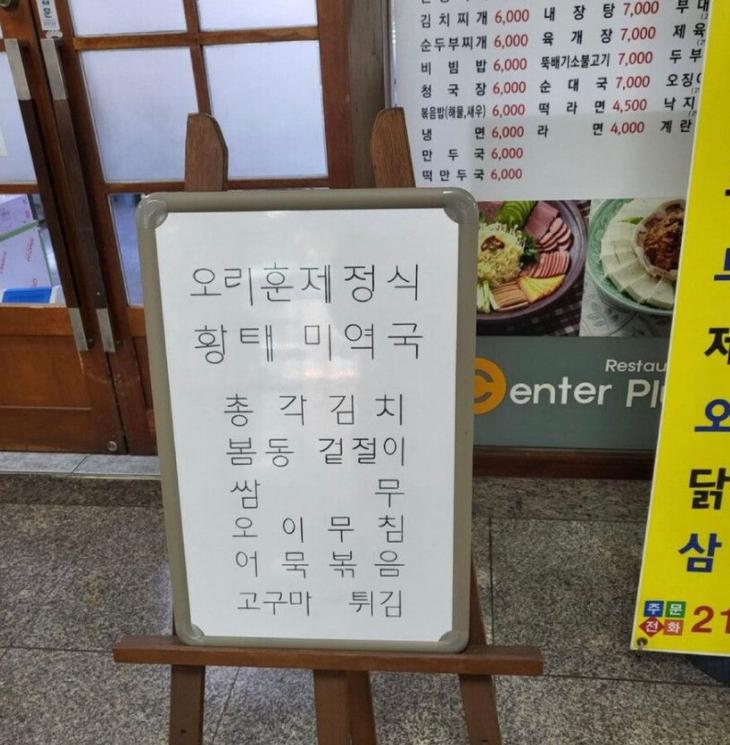 김치찌개 6,000 내장탕 7,000 부대
순두부찌개 6,000 육개장 7,000 제육
비빔밥 6,000 뚝배기소불고기 7,000 두부
청국장 6,000 순대국 7,000
볶음밥(해물,새우) 6,000 떡라면 4,500 낙지
냉면 6,000 라면 4,000 계란
만두국 6,000
떡만두국 6,000
오리훈제정식
황태 미역국
총각김치
봄동 겉절이
쌈무
오이무침
어묵볶음
고구마 튀김
Center
제
오
닭
삼
주문
전화 21